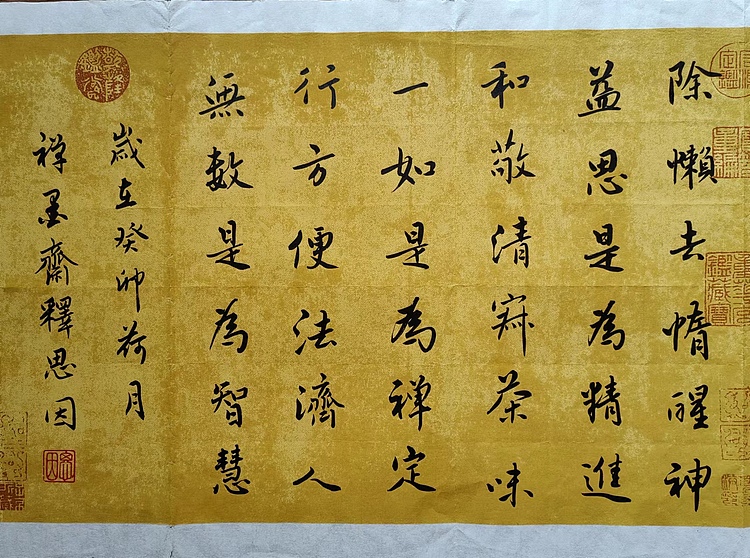 除懶去惰醒神
益思是為精進
和敬清寂茶味
一如是為禅定
行方便法濟人
無数是為智慧
歲在癸卯荷月
禅墨齋釋思因